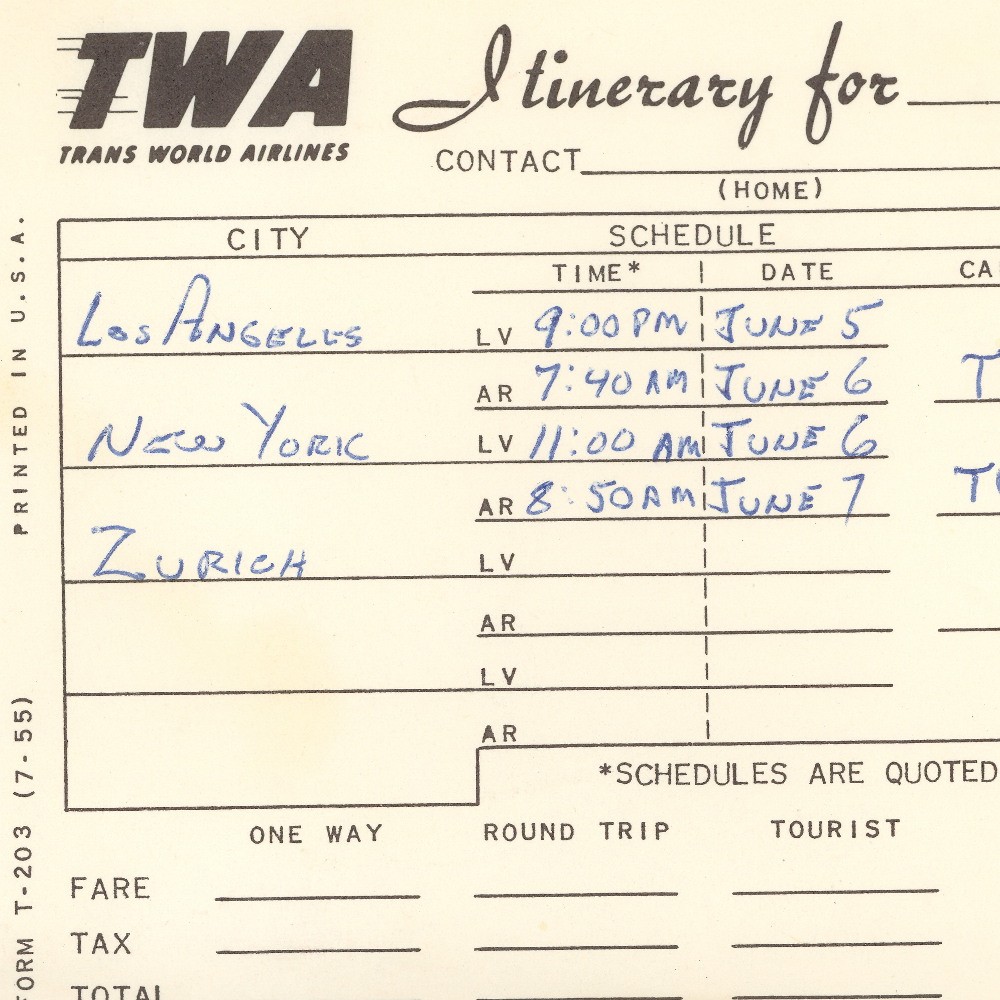 TWA Itinerary for
TRANS WORLD AIRLINES
CONTACT
(HOME)
CITY SCHEDULE
TIME* DATE
Los Angeles LV 9:00 PM June 5
AR 7:40 AM June 6
New York LV 11:00 AM June 6
AR 8:50 AM June 7
Zurich LV
AR
LV
AR
*SCHEDULES ARE QUOTED
ONE WAY ROUND TRIP TOURIST
FARE
TAX
TOTAL
FORM T-203 (7-55) PRINTED IN U.S.A.